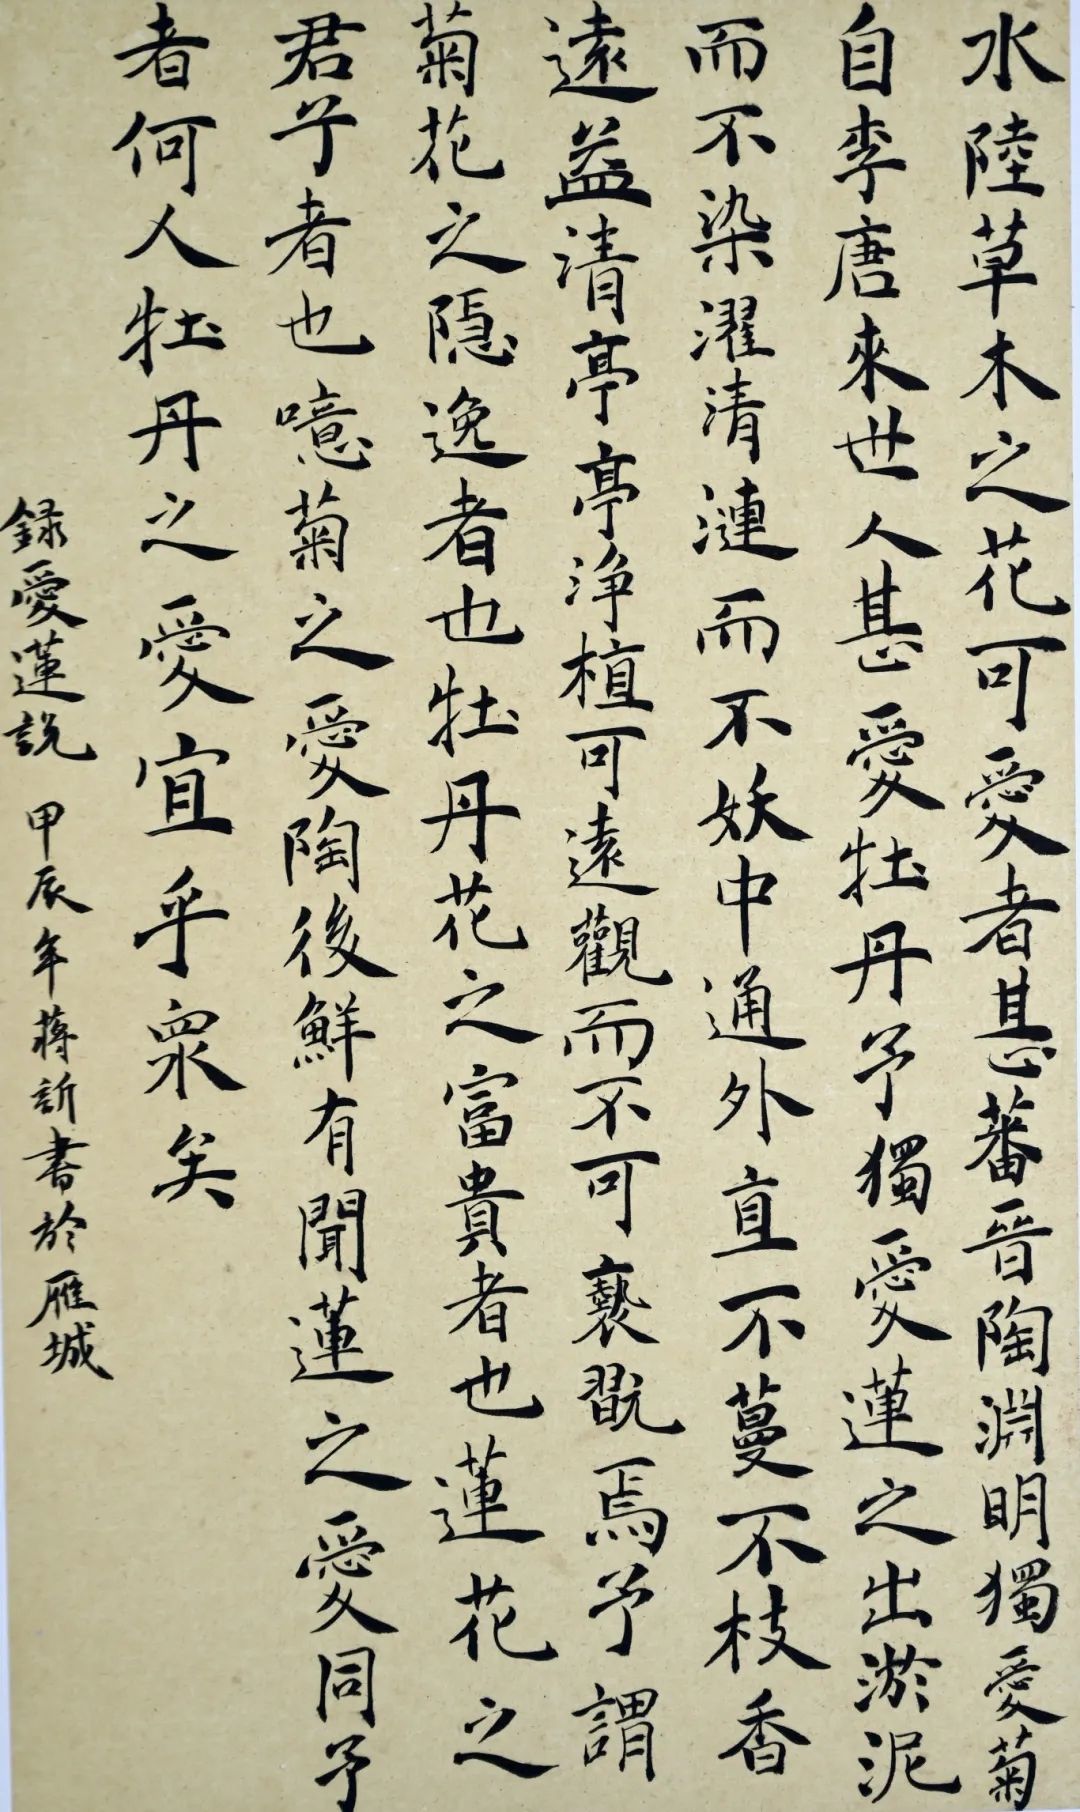 水陸草木之花可愛者甚蕃晉陶淵明獨愛菊
自李唐來世人甚愛牡丹予獨愛蓮之出淤泥
而不染濯清漣而不妖中通外直不蔓不枝香
遠益清亭亭浄植可遠觀而不可褻翫焉予謂
菊花之隠逸者也牡丹花之富貴者也蓮花之
君子者也噫菊之愛陶後鮮有聞蓮之愛同予
者何人牡丹之愛宜乎眾矣
録愛蓮説 甲辰年蔣訢書於雁城